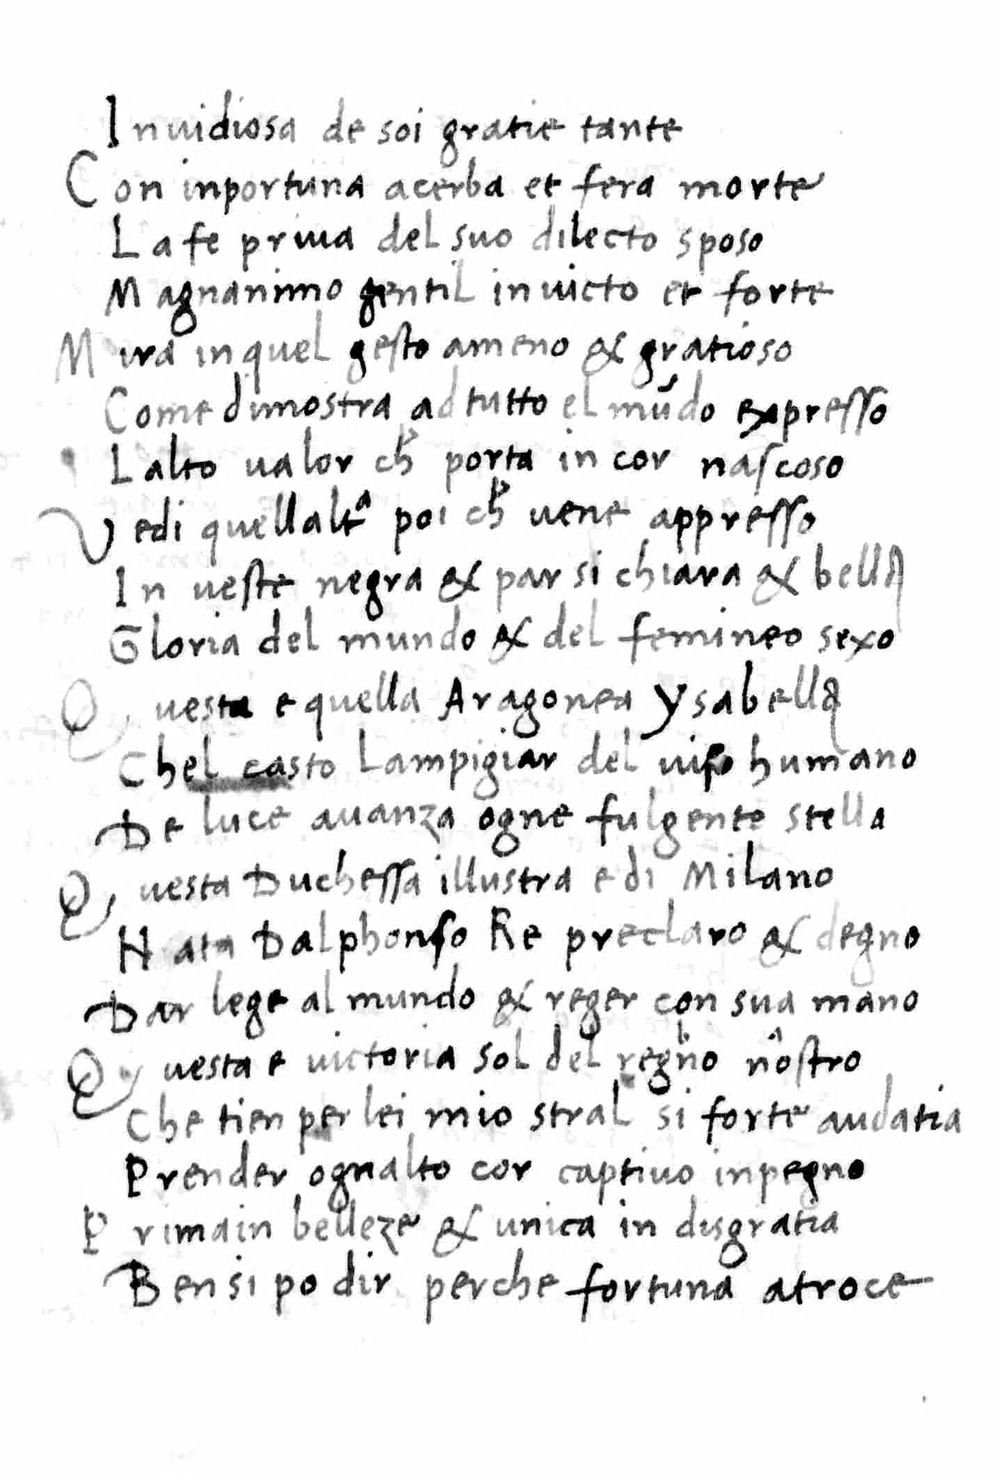 Inuidiosa de soi gratie tante
Con inportuna acerba et fera morte
La fe priua del suo dilecto sposo
Magnanimo gentil inuicto et forte
Mira in quel gesto ameno & gratioso
Come dimostra ad tutto el mũdo expresso
Lalto ualor ch̓ porta in cor nascoso
Vedi quellaltᵃ poi ch̓ uene appresso
In ueste negra & par si chiara & bella
Gloria del mundo & del femineo sexo
Questa e quella Aragonea Ysabella
Chel casto lampigiar del uiso humano
De luce auanza ogne fulgente stella
Questa Duchessa illustra e di Milano
Nata Dalphonso Re preclaro & degno
Dar lege al mundo & reger con sua mano
Questa e uictoria sol del regno nostro
Che tien per lei mio stral si forte audatia
Prender ognalto cor captiuo in pegno
Prima in belleze & unica in disgratia
Ben si po dir perche fortuna atroce